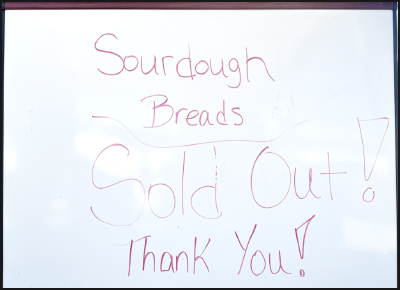 Sourdough
Breads
Sold Out!
Thank You!